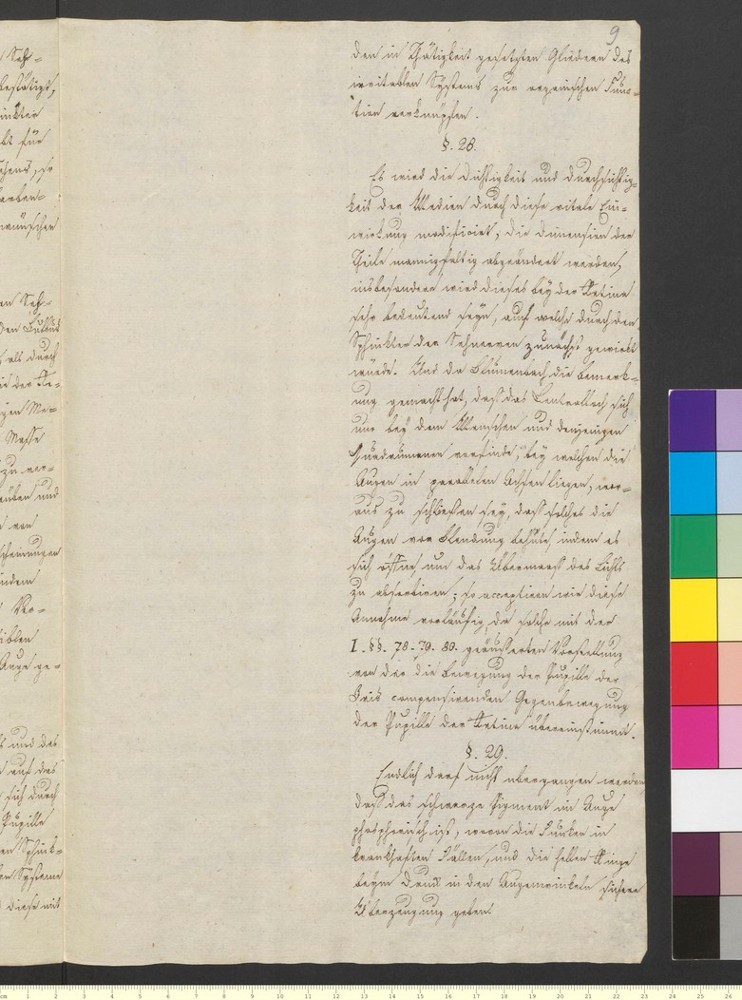 9
den in Thätigkeit gesetzten Gliedern des
irritablen Systems zur organischen Func-
tion verknüpfen.
§. 28.
Es wird die Dichtigkeit und Durchsichtig-
keit der Medien durch diese vitale Ein-
wirkung modificirt, die Dimension der
Theile mannigfaltig abgeändert werden,
insbesondere wird dieses bey der Retina
sehr bedeutend seyn, auf welche durch den
Sphinkter der Sehnerven zunächst gewirkt
würde. Und da Blumenbach die Bemerk-
ung gemacht hat, daß das Centralloch sich
nur bey dem Menschen und denjenigen
Quadrumanen vorfinde, bey welchen die
Augen in parallelen Achsen liegen, wor-
aus zu schließen sey, daß solches die
Augen vor Blendung behüte indem es
sich öffne und das Übermaaß des Lichts
zu absorbiren; so acceptiren wir diese
Annahme vorläufig, da solche mit der
I. §§. 78. 79. 80. geäusserten Vorstellung
von der die Bewegung der Pupille der
Iris compensirenden Gegenbewegung
der Pupille der Retina übereinstimmt.
§. 29.
Endlich darf nicht übergangen werden
daß das schwarze Pigment im Auge
phosphorisch ist, wovon die Funken in
krankhaften Fällen, und die hellen Ringe
beym Druck in den Augenwinkeln sichere
Überzeugung geben.